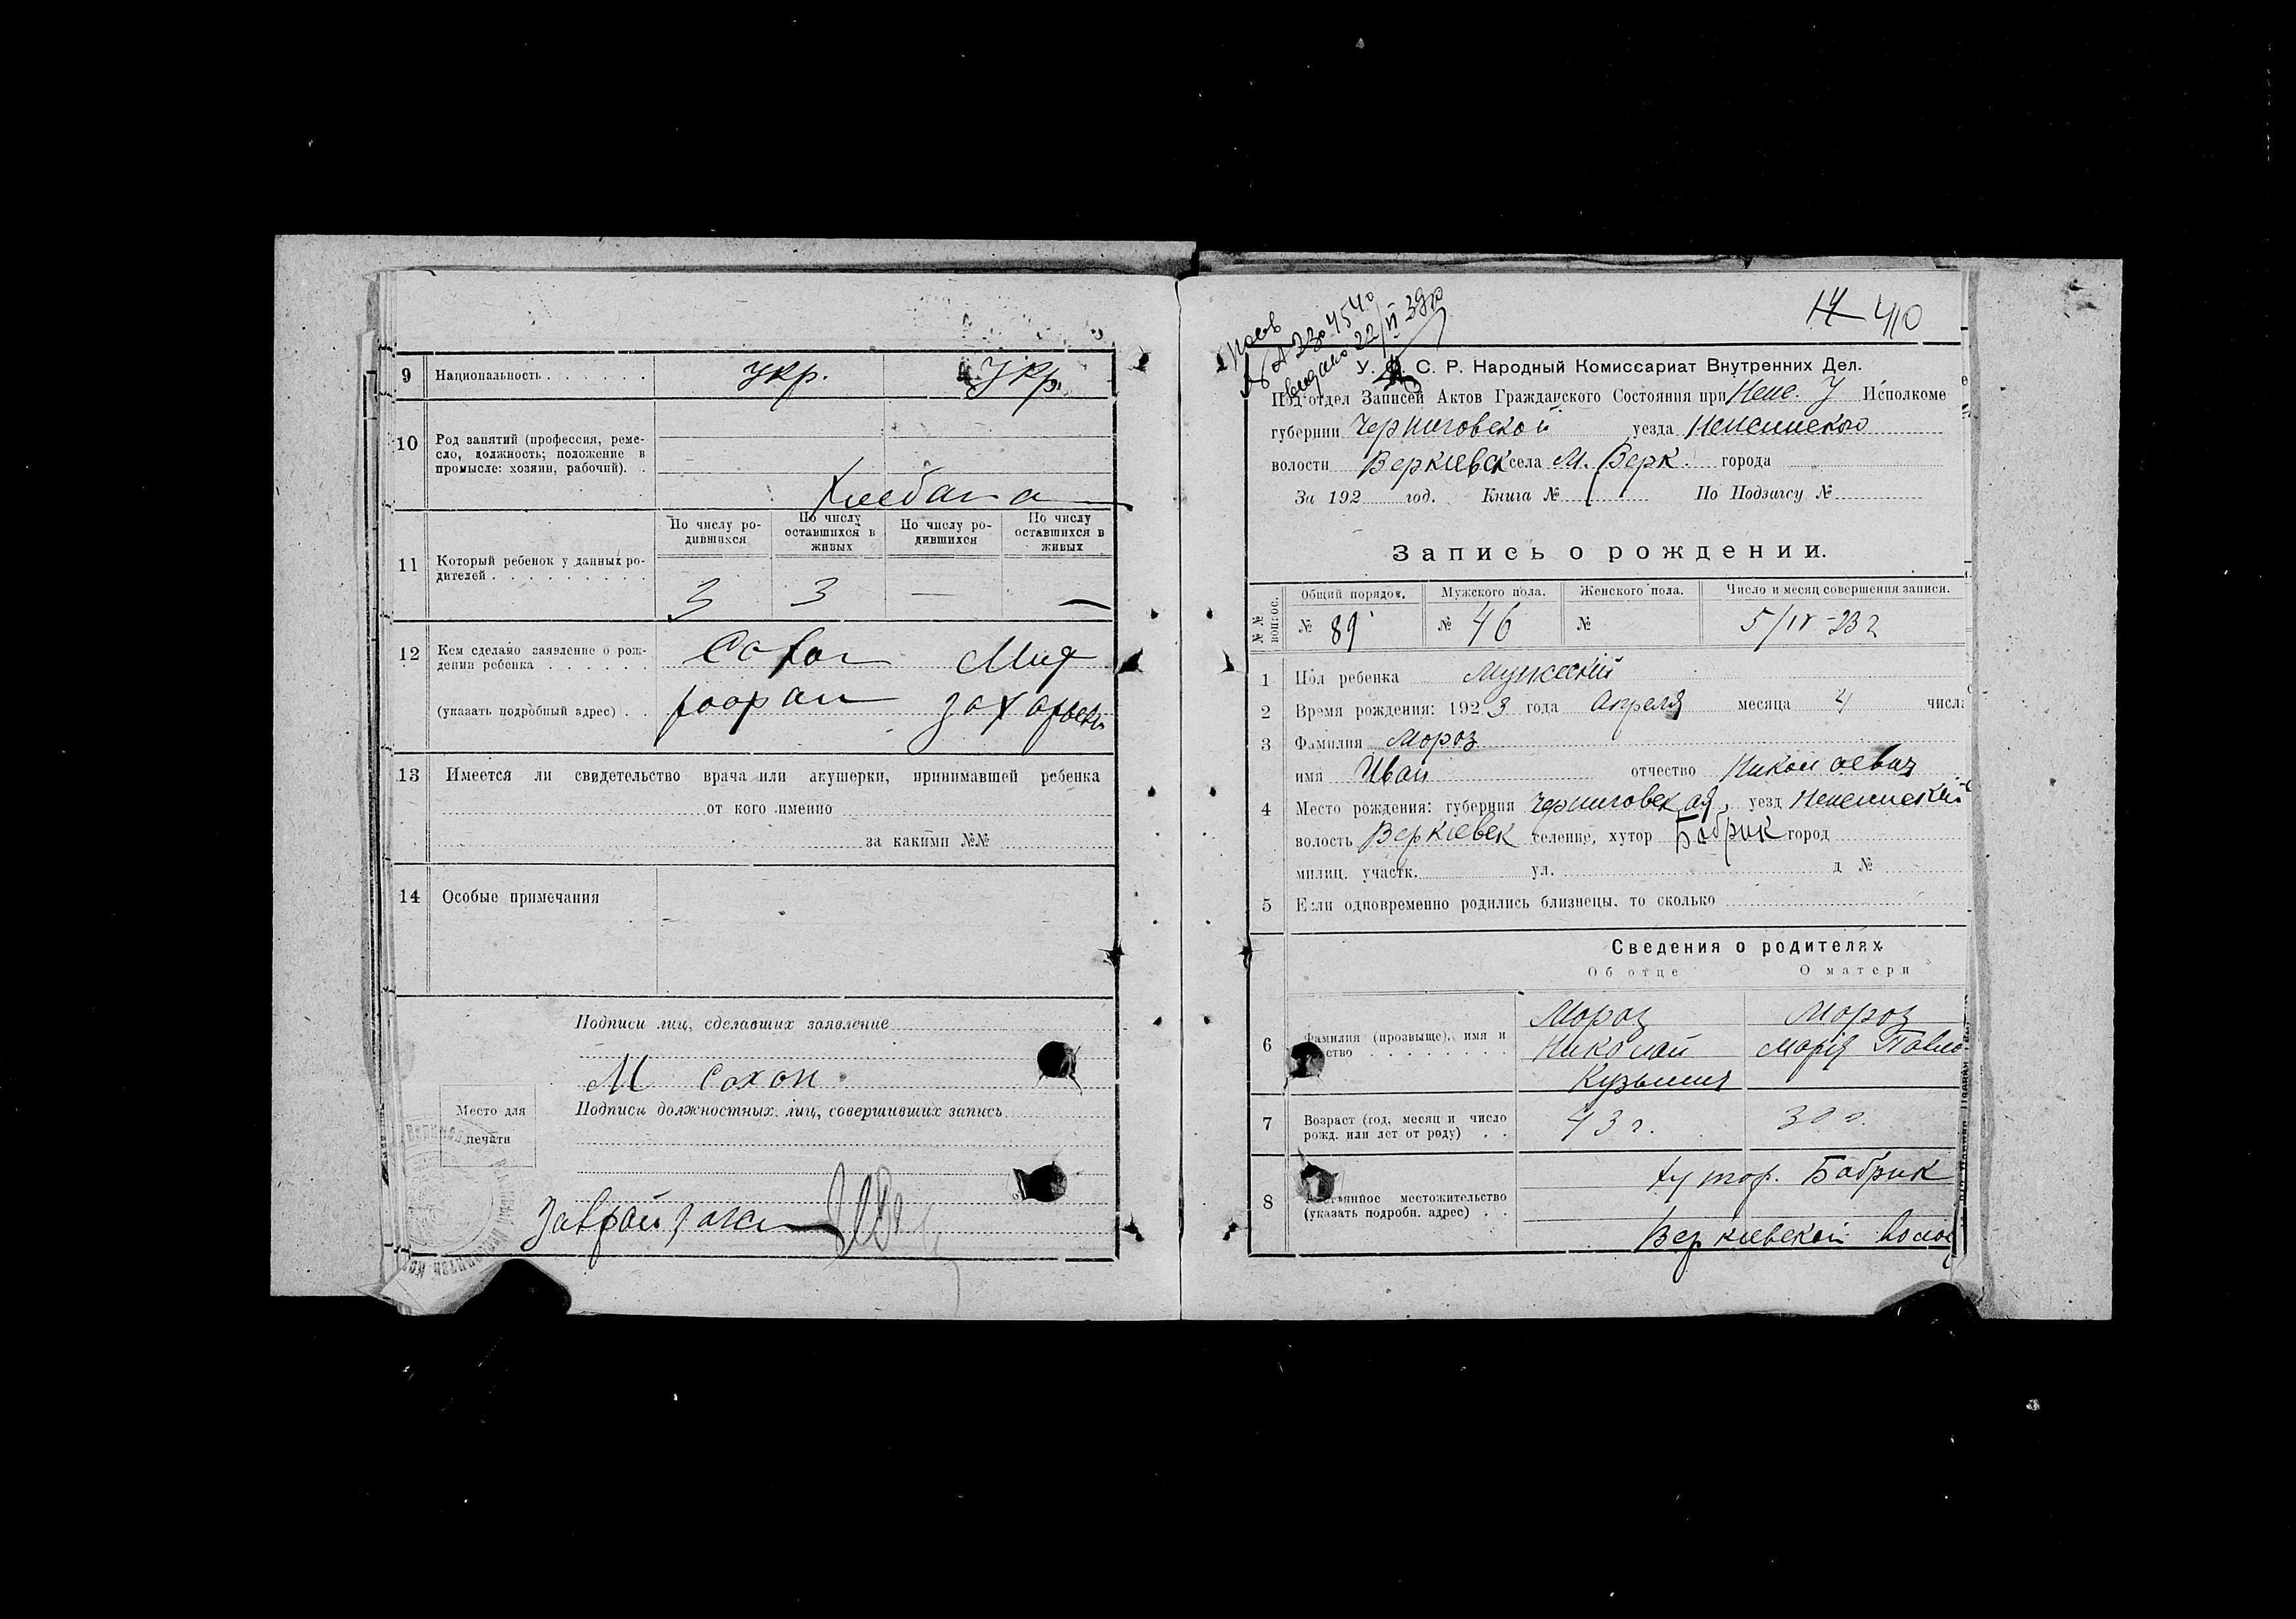 9 Национальность . . . . . . . укр. Укр.
10 Род занятий (профессия, реме-
сло, должность; положение в
промысле: хозяин, рабочий). .
По числу ро-
дившихся
По числу
оставшихся в
живых
По числу ро-
дившихся
По числу
оставшихся в
живых
11 Который ребенок у данных ро-
дителей . . . . . . . . . 3 3 — —
12 Кем сделано заявление о рож-
дении ребенка . . . . . .
(указать подробный адрес) . .
13 Имеется ли свидетельство врача или акушерки, принимавшей ребенка
от кого именно
за какими №№
14 Особые примечания
Подписи лиц, сделавших заявление
М Сохон
Место для
печати
Подписи должностных лиц, совершивших запись
14 40
выдано 22/VI 39
У. С. Р. Народный Комиссариат Внутренних Дел.
Под'отдел Записей Актов Гражданского Состояния при Неж. У Исполкоме
губернии Черниговской уезда Неженского
волости Веркиевск села М. Верк. города
За 192 год. Книга № По Подзагсу №
Запись о рождении.
№№ вопрос.
Общий порядов. Мужского пола. Женского пола. Число и месяц совершения записи.
№ 89 № 46 № 5/IV-23 г
1 Пол ребенка Мужеский
2 Время рождения: 1923 года Апреля месяца 4 числа
3 Фамилия Мороз
имя Иван отчество Николаевич
4 Место рождения: губерния Черниговская, уезд Неженский
волость Веркиевск селение, хутор Бобрик город
милиц. участк. ул. д №
5 Если одновременно родились близнецы, то сколько
Сведения о родителях
Об отце О матери
6 Фамилия (прозвыще), имя и
ество . . . . . . . .
Мороз
Николай
Кузьмич
Мороз
Марія Павло
7 Возраст (год, месяц и число
рожд. или лет от роду) . . 43 г. 30 г.
8 янное местожительство
(указать подробн. адрес) . .
хутор. Бобрик
Веркиевской волос